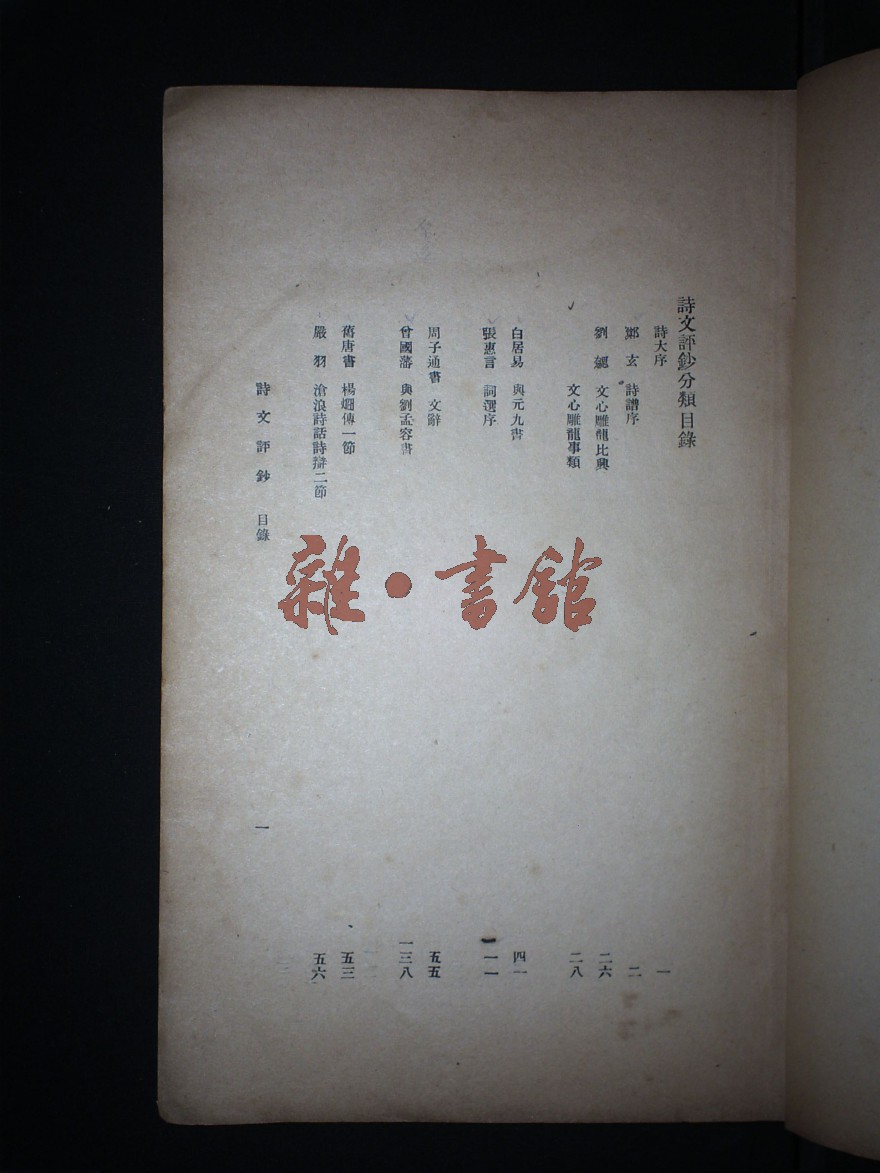 詩文評鈔分類目錄
詩大序 一
鄭玄 詩譜序 二
劉勰 文心雕龍比興 二六
文心雕龍事類 二八
白居易 與元九書 四一
張惠言 詞選序 一一一
周子通書 文辭 五五
曾國藩 與劉孟容書 一三八
舊唐書 楊烱傳一節 五三
嚴羽 滄浪詩話詩辯二節 五六
詩文評鈔 目錄 一
雜·書館